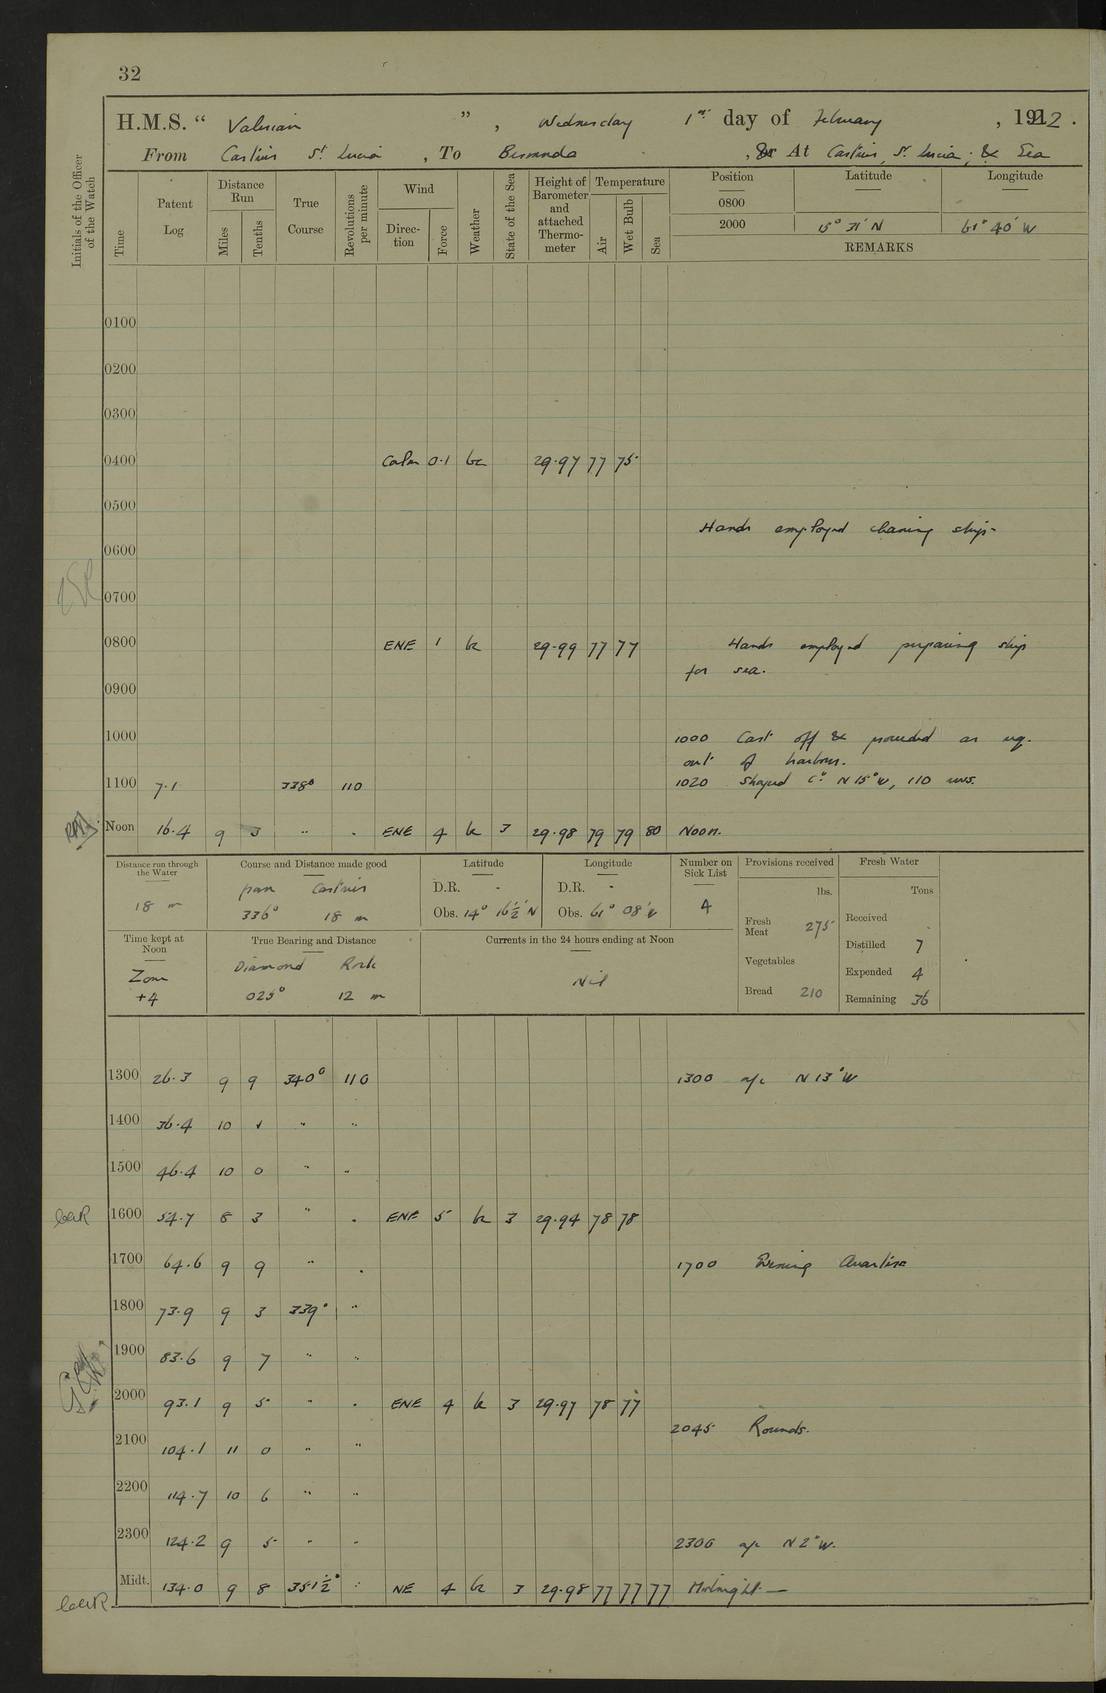 32
H.M.S. " Valerian " , Wednesday 1st day of February , 1922 .
From Castries St Lucia , To Bermuda , or At Castries, St Lucia; & Sea
Initials of the Officer of the Watch
Time
Patent Log
Distance Run
Miles
Tenths
True Course
Revolutions per minute
Wind
Direction
Force
Weather
State of the Sea
Height of Barometer and attached Thermometer
Temperature
Air
Wet Bulb
Sea
Position Latitude Longitude
0800
2000 15° 31' N 61° 40' W
REMARKS
0100
0200
0300
0400 Calm 0.1 bc 29.97 77 75
0500
Hands employed cleaning ship
0600
0700
0800 ENE 1 bc 29.99 77 77 Hands employed preparing ship
for sea.
0900
1000 1000 Cast off & proceeded as req.
out of harbour.
1100 7.1 338° 110 1020 Shaped Co N 15° W, 110 revs.
Noon 16.4 9 3 " " ENE 4 bc 3 29.98 79 79 80 Noon.
Distance run through the Water
18 m
Course and Distance made good
from Castries
336° 18 m
Latitude
D.R. -
Obs. 14° 16½' N
Longitude
D.R. -
Obs. 61° 08' W
Number on Sick List
4
Provisions received
lbs.
Fresh Meat 275
Vegetables
Bread 210
Fresh Water
Tons
Received
Distilled 7
Expended 4
Remaining 36
Time kept at Noon
Zone
+4
True Bearing and Distance
Diamond Rock
025° 12 m
Currents in the 24 hours ending at Noon
Nil
1300 26.3 9 9 340° 110 1300 a/c N 13° W
1400 36.4 10 1 " "
1500 46.4 10 0 " "
1600 54.7 8 3 " " ENE 5 bc 3 29.94 78 78
1700 64.6 9 9 " " 1700 Evening Quarters
1800 73.9 9 3 339° "
1900 83.6 9 7 " "
2000 93.1 9 5 " " ENE 4 bc 3 29.97 78 77
2045 Rounds.
2100 104.1 11 0 " "
2200 114.7 10 6 " "
2300 124.2 9 5 " " 2300 a/c N 2° W.
Midt. 134.0 9 8 351½° : NE 4 bc 3 29.98 77 77 77 Midnight —